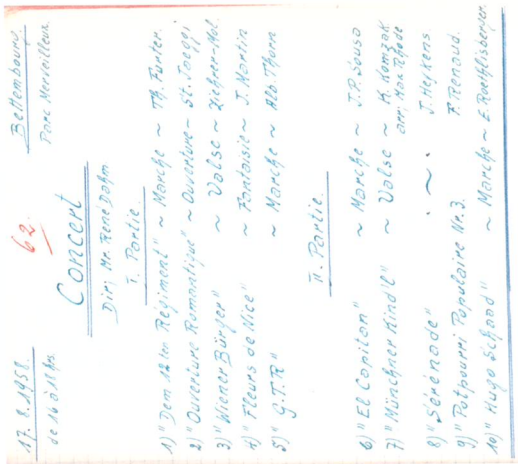 17.8.1958. 62. Bettembourg.
de 16 à 18 hrs. Parc Merveilleux.
Concert
Dir; Mr. René Dahm
I. Partie.
1) "Dem 12ten Regiment" ~ Marche ~ Th. Furter.
2) "Ouverture Romantique" ~ Ouverture ~
3) "Wiener Bürger" ~ Valse ~ Ziehrer-Hol.
4) "Fleurs de Nice" ~ Fantaisie ~ J. Martin
5) "G.T.R" ~ Marche ~ Alb. Thorn
II. Partie.
6) "El Capitan" ~ Marche ~ J.P. Sousa
7) "Münchner Kind'l" ~ Valse ~ K. Komzak
arr; Max Rhode
8) "Sérénade" . ~ . J. Heykens
9) "Potpourri Populaire Nr. 3. F. Renaud.
10) "Hugo Schaad" ~ Marche ~ E. Roethlisberger.